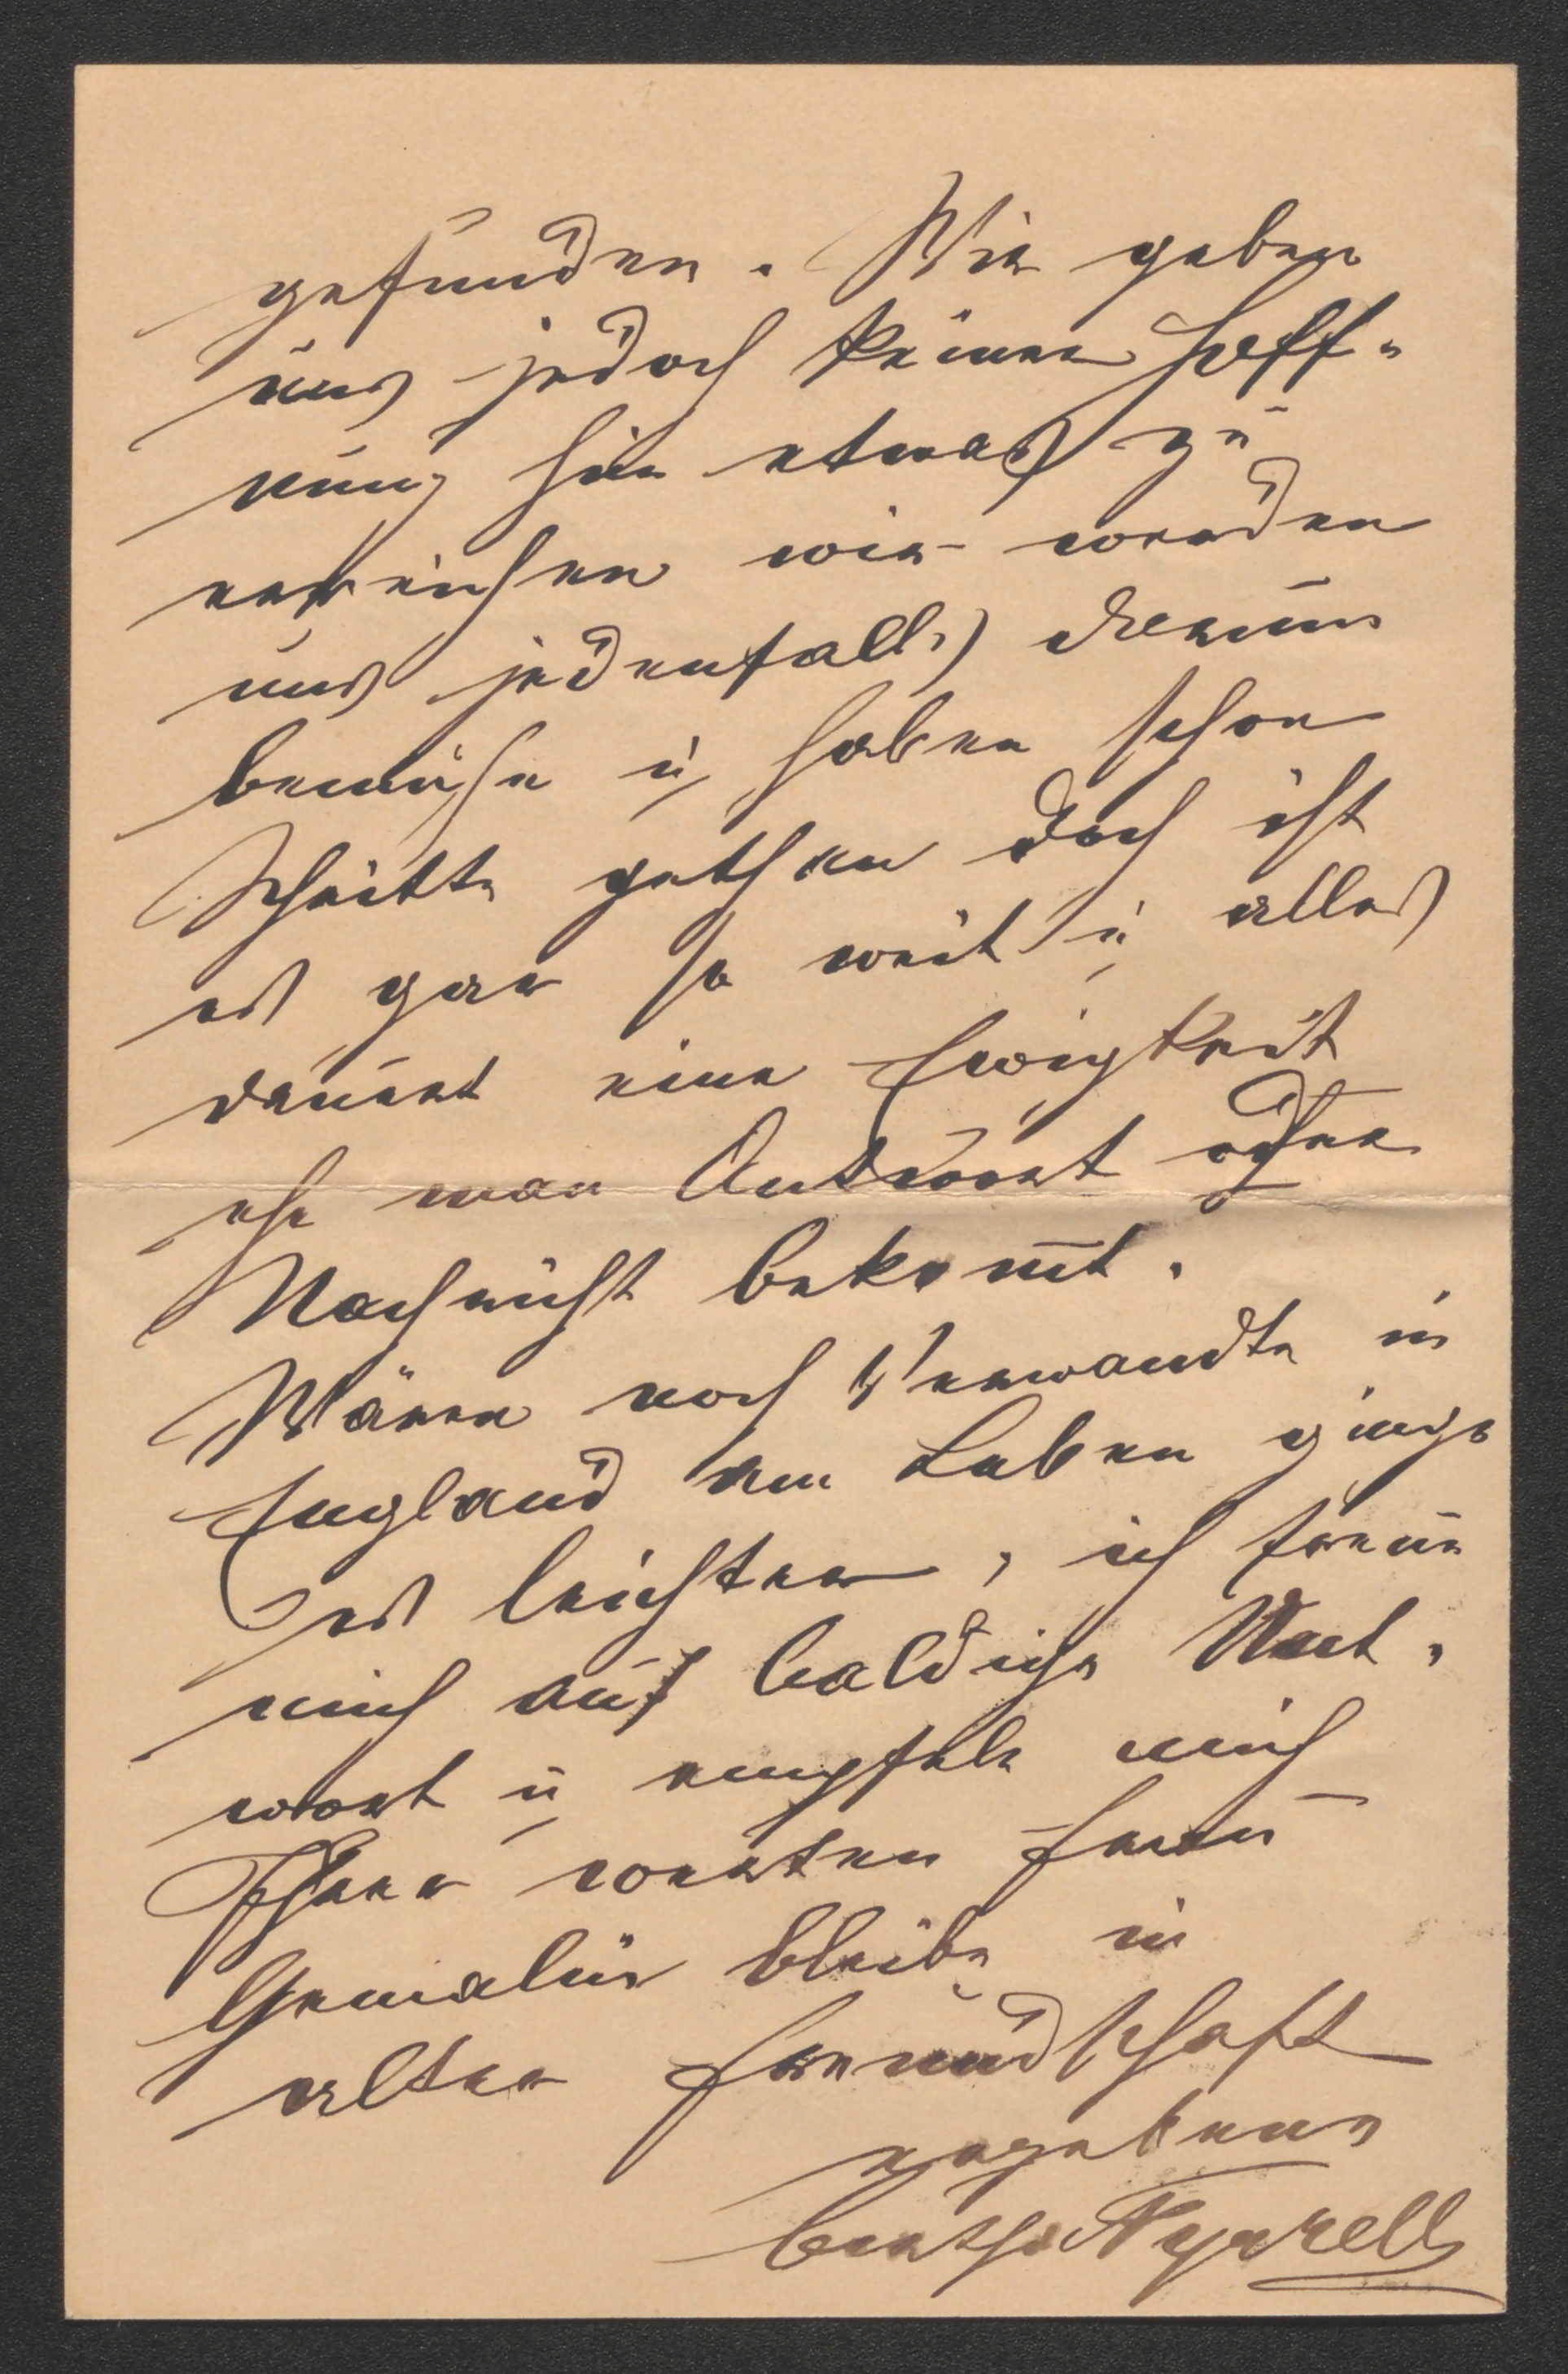 gefunden. Wir geben
uns jedoch keiner Hoff-
nung hin etwas zu
erreichen wir werden
uns jedenfalls darum
bemühn u haben schon
Schritte gethan doch ist
es gar so weit u alles
dauert eine Ewigkeit
ehe man Antwort oder
Nachricht bekom̄t.
Wären noch Verwandte in
England am Leben ginge
es leichter, ich freue
mich auf baldige Ant-
wort u empfele mich
Ihrer werten Frau
Gemalin bleibe in
alter Freundschaft
ergebene
Bertha Tyrrell